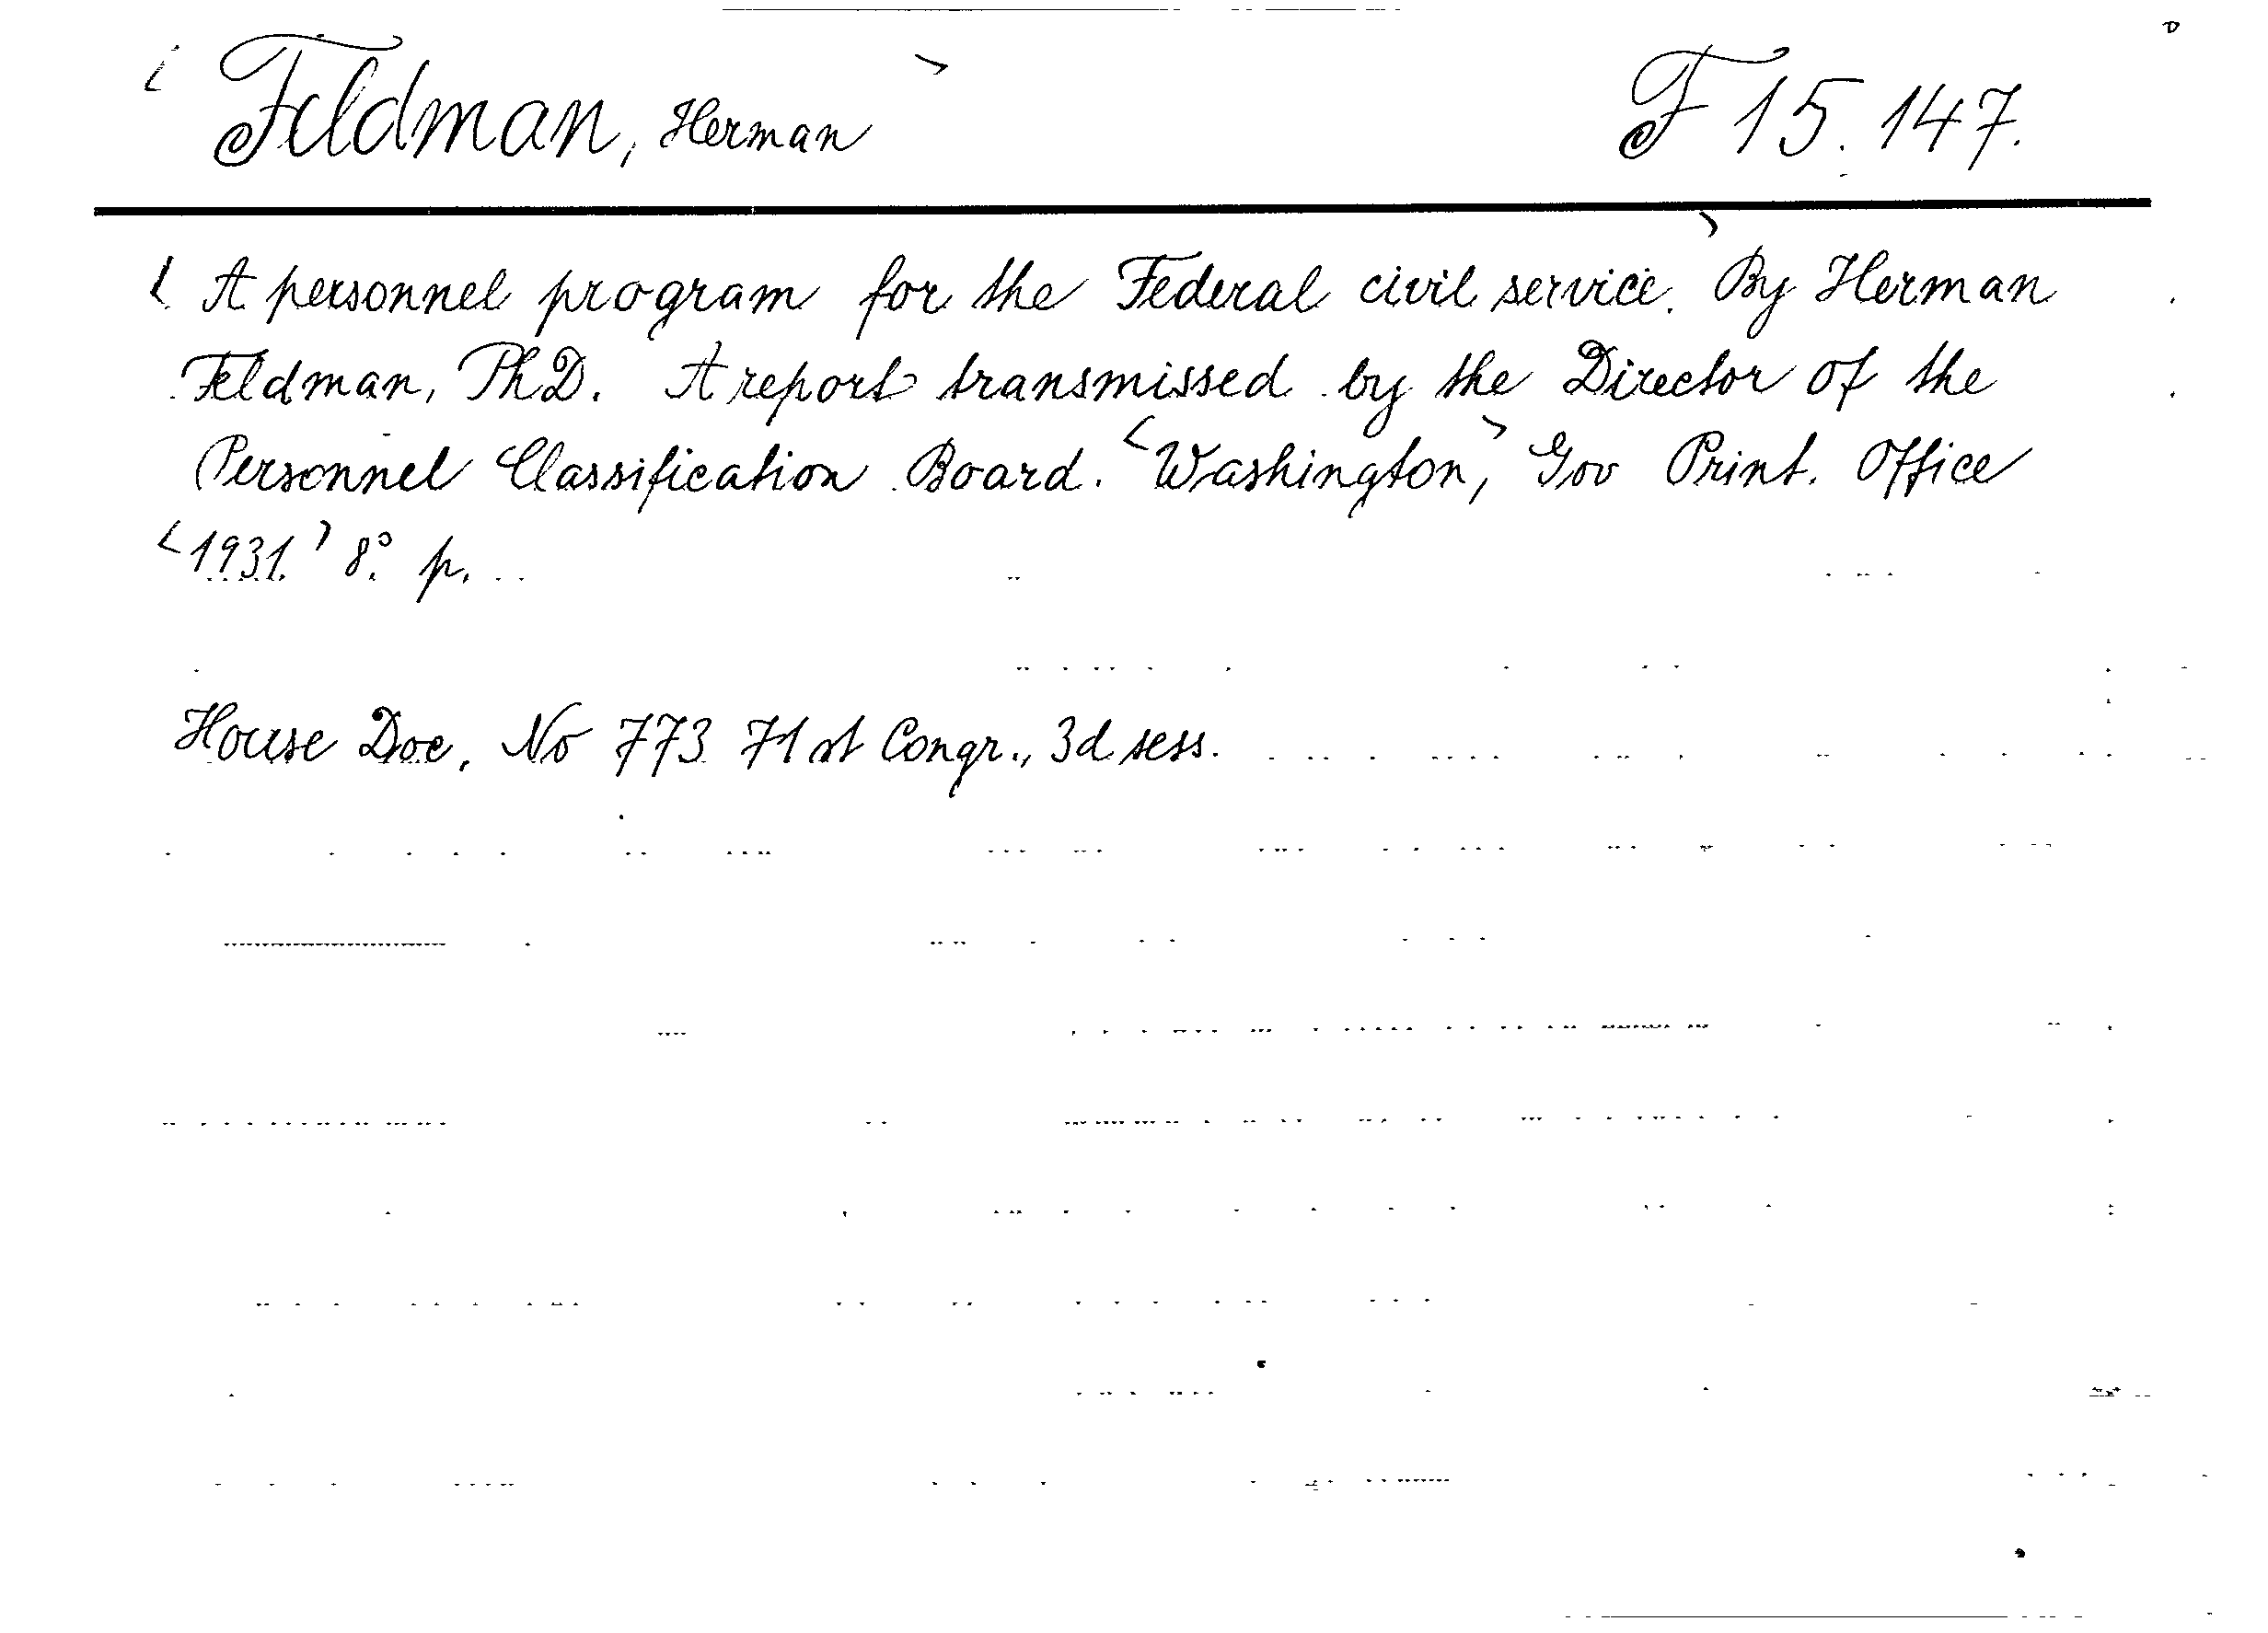 < Feldman, Herman > F 15.147.
< A personnel program for the Federal civil service.> By Herman
Feldman, PhD. A report transmissed by the Director of the
Personnel Classification Board. <Washington,> Gov Print. Office
<1931.> 8.° p.
House Doc. No 773 71st Congr., 3d sess.